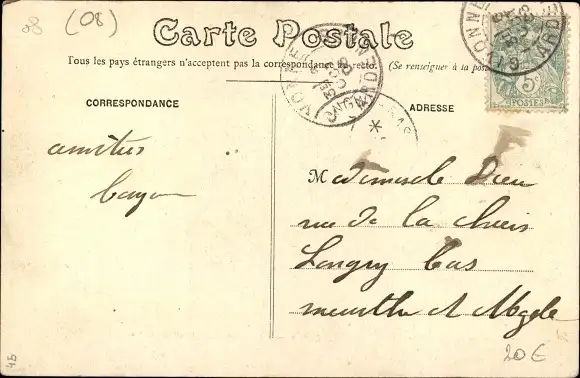 98 (08)
Carte Postale
Tous les pays étrangers n'acceptent pas la correspondance au recto. (Se renseigner à la pos
CORRESPONDANCE
ADRESSE
amitiés
Mademoiselle Dieu
rue de la
Longwy bas
meurthe et Mgelle
5c
POSTES
20€